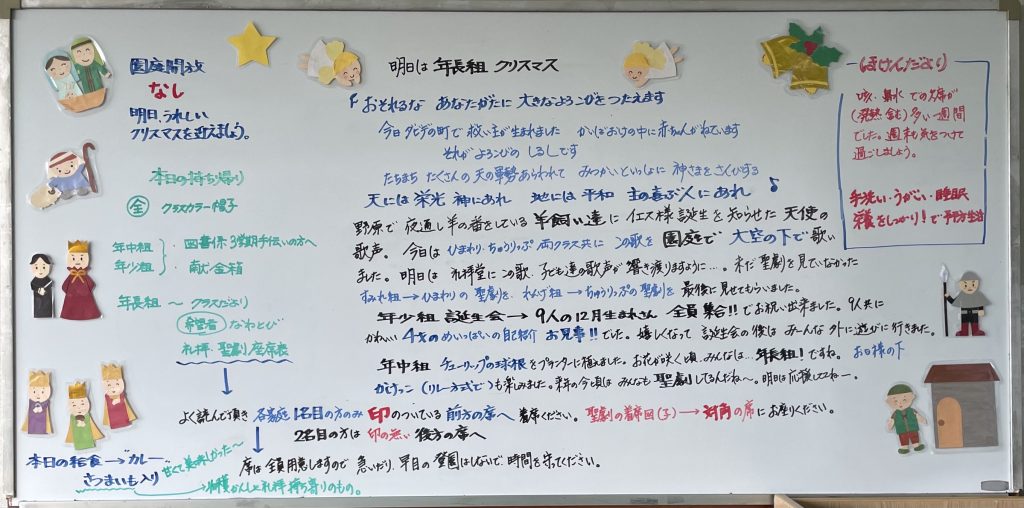 園庭開放
なし
明日、うれしい
クリスマスを迎えましょう。
本日の持ち帰り
全 クラスカラー帽子
年中組 ・図書係 3学期手伝いの方へ
年少組 ・献金箱
年長組 〜 クラスだより
希望者 なわとび
礼拝、聖劇座席表
明日は 年長組 クリスマス
「おそれるな あなたがたに 大きなよろこびをつたえます
今日 ダビデの町で 救い主が生まれました かいばおけの中に赤ちゃんがねています
それがよろこびの しるしです
たちまち たくさんの 天の軍勢あらわれて みつかいといっしょに 神さまをさんびする
天には栄光 神にあれ 地には平和 主の喜ぶ人にあれ ♪
野原で 夜通し羊の番をしている 羊飼い達に イエス様 誕生を 知らせた 天使の
歌声。 今日は ひまわり・ちゅうりっぷ 両クラス共に この歌を 園庭で 大空の下で歌い
ました。明日は 礼拝堂にこの歌、子ども達の歌声が 響き渡りますように…。未だ 聖劇を見ていなかった
すみれ組→ひまわりの 聖劇を、れんげ組→ちゅうりっぷの聖劇を 最後に見せてもらいました。
年少組 誕生会→ 9人の12月生まれさん 全員集合!! でお祝い出来ました。9人共に
かわいい 4才の めいっぱいの自己紹介 お見事!! でした。嬉しくなって 誕生会の後は みーんな 外に遊びに行きました。
年中組 チューリップの球根をプランターに植えました。お花が咲く頃、みんなは… 年長組! ですね。 お日様の下
かけっこ(リレー方式で)も楽しみました。来年の今頃は みんなも聖劇してるんだね〜。明日は応援しててねー。
よく読んで頂き 各家庭 1名目の方のみ 印のついている 前方の席へ 着席ください。 聖劇の着席図(子)→対角の席にお座りください。
2名目の方は 印の無い 後方の席へ
席は 全員用意しますので 急いだり、早目の 登園はしないで、時間を守ってください。
本日の給食→カレー
さつまいも入り
甘くて美味しかった〜
収穫かんしゃ礼拝 持ち寄りのもの。
ほけんだより
咳・鼻水 での欠席が
(発熱含む)多い一週間
でした。週末も気をつけて
過ごしましょう。
手洗い・うがい・睡眠
栄養をしっかり!で予防生活